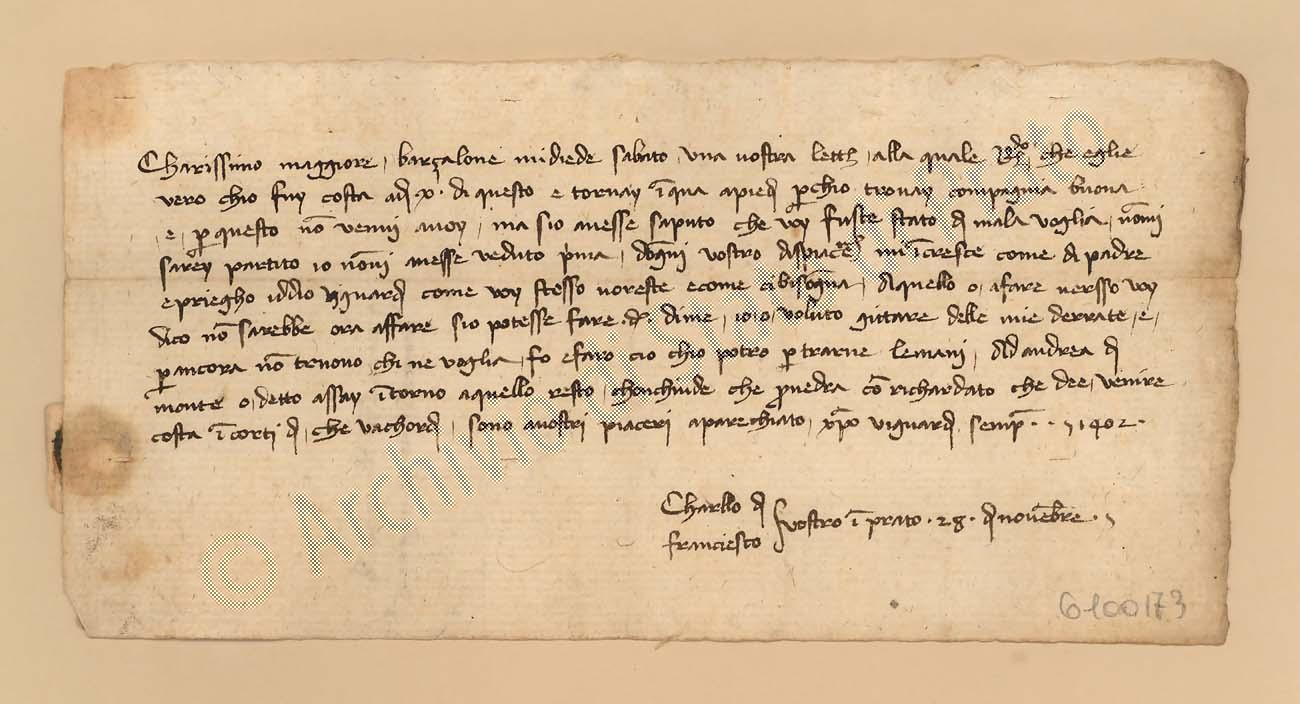 Charissimo maggiore, barzalone mi diede sabato una vostra letta, alla quale R.do che eglie
vero chio fuy costa adj x. di questo e tornay īqua apiedj p̄chio trovay compagnia buona
e, p̄ questo nō venni avoy, ma sio avesse saputo che voy fuste stato dj mala voglia, nōmi
sarey partito io nōvi avesse veduto p̄ma, dogni vostro dispiacere mīcresce come dj padre
e priegho iddio vi guardj come voy stesso voreste e come ci bisogna, A quello o, afare versso voy
dico nō sarebbe ora affare sio potesse fare dj. dime, io, o, voluto gittare delle mie derrate, e,
p̄ ancora nō truovo chi ne voglia, fo e faro cio chio potro p̄ trarne lemani, Ad andrea dj
monte o, detto assay ītorno aquello resto, chonchiude che provedra cō richardato che dee, venire
costa ī corti dj, che vachordj, sono avostri piaceri aparechiato, xp̄o vi guardj semp̄ . . 1402.
Charllo dj
franciescho
vostro ī prato . 28 . dj novēbre .
6100173
© Archivio di Stato di Prato